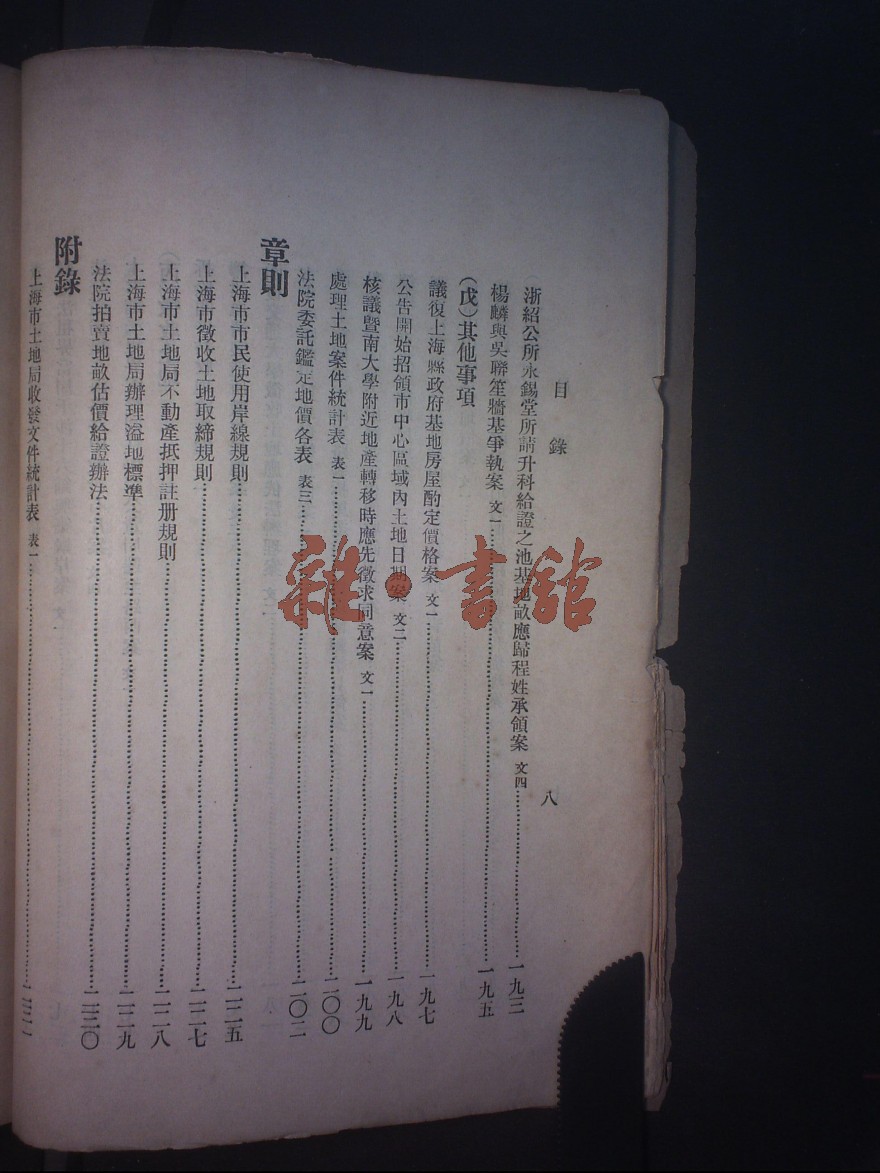 目錄 八
浙紹公所永錫堂所請升科給證之池基地畝應歸程姓承領案 文四……一九三
楊麟與吳聯笙牆基爭執案 文一……一九五
(戊)其他事項
議復上海縣政府基地房屋酌定價格案 文一……一九七
公告開始招領市中心區域內土地日期案 文二……一九八
核議暨南大學附近地產轉移時應先徵求同意案 文一……一九九
處理土地案件統計表 表一……二〇〇
法院委託鑑定地價各表 表三……二〇二
章則
上海市市民使用岸線規則……二二五
上海市徵收土地取締規則……二二七
上海市土地局不動產抵押註册規則……二二八
上海市土地局辦理溢地標準……二二九
法院拍賣地畝估價給證辦法……二三〇
附錄
上海市土地局收發文件統計表 表一……二三一
雜·書館